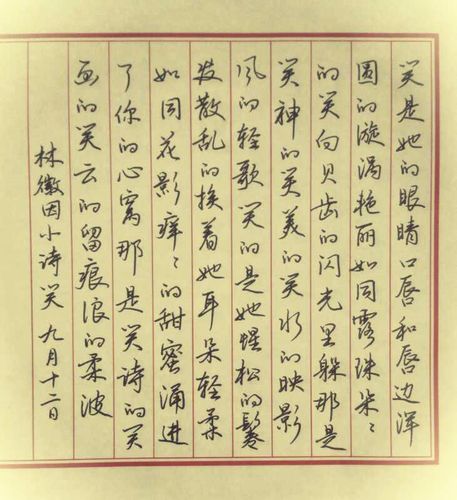 笑是她的眼睛口唇和唇边浑
圆的漩涡艳丽如同露珠朵々
的笑向贝齿的闪光里躲那是
笑神的笑美的笑水的映影
风的轻歌笑的是她惺松的鬈
发散乱的挨着她耳朵轻柔
如同花影痒々的甜蜜涌进
了你的心窝那是笑诗的笑
画的笑云的留痕浪的柔波
林徽因小诗笑 九月十二日